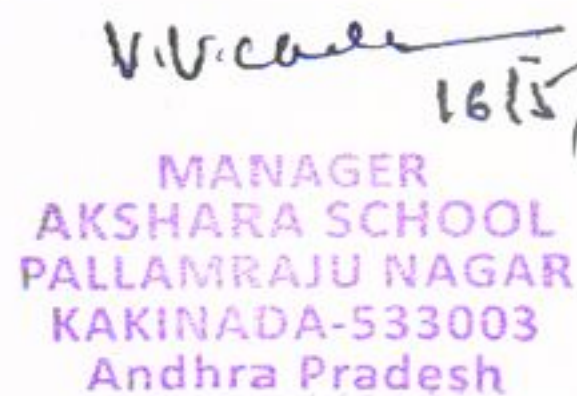 16/5
MANAGER
AKSHARA SCHOOL
PALLAMRAJU NAGAR
KAKINADA-533003
Andhra Pradesh